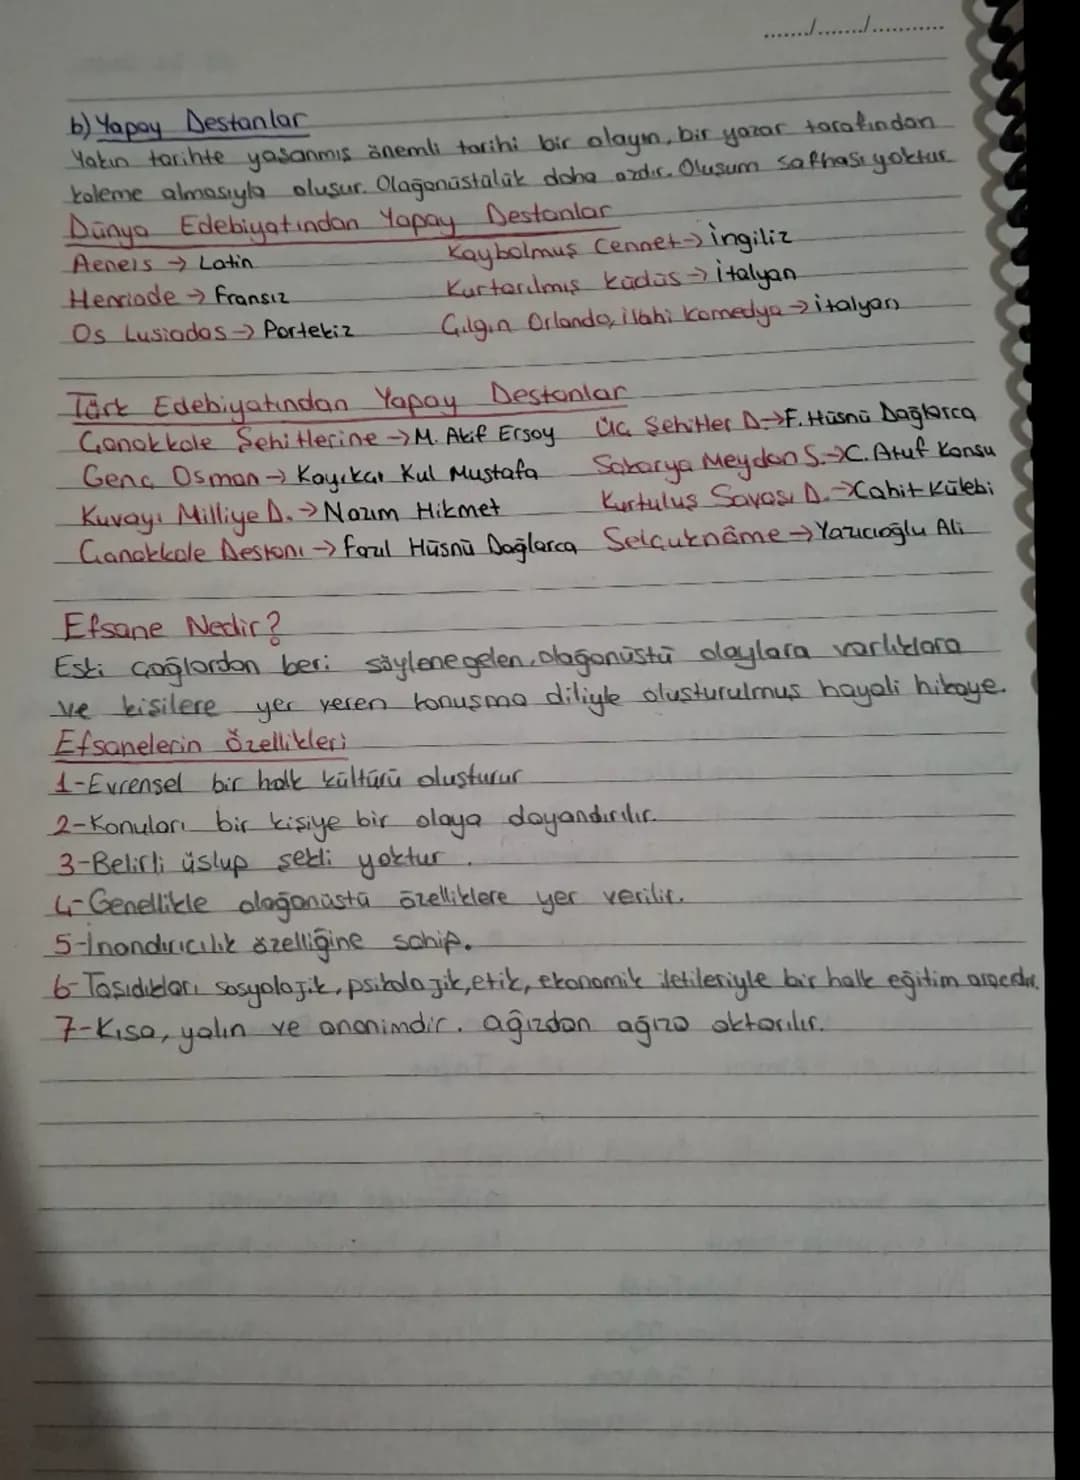 ......./......./...........
b) Yapay Destanlar
Yakın tarihte yaşanmış önemli tarihi bir olayın, bir yazar tarafından
kaleme almasıyla oluşur. Olağanüstülük daha azdır. Oluşum safhası yoktur.
Dünya Edebiyatından Yapay Destanlar
Aeneis → Latin Kaybolmuş Cennet → İngiliz
Henriade → Fransız Kurtarılmış Kudüs → İtalyan
Os Lusiadas → Portekiz Çılgın Orlando, ilahi komedya → İtalyan
Türk Edebiyatından Yapay Destanlar
Çanakkale Şehitlerine → M. Akif Ersoy Üç Şehitler D. → F. Hüsnü Dağlarca
Genç Osman → Kayıkçı Kul Mustafa Sakarya Meydan S. → C. Atuf Kansu
Kuvayı Milliye D. → Nazım Hikmet Kurtuluş Savaşı D. → Cahit Külebi
Çanakkale Destanı → Fazıl Hüsnü Dağlarca Selçuknâme → Yazıcıoğlu Ali
Efsane Nedir?
Eski çağlardan beri söylenegelen, olağanüstü olaylara varlıklara
ve kişilere yer veren konuşma diliyle oluşturulmuş hayali hikaye.
Efsanelerin Özellikleri
1-Evrensel bir halk kültürü oluşturur
2-Konuları bir kişiye bir olaya dayandırılır.
3-Belirli üslup şekli yoktur.
4-Genellikle olağanüstü özelliklere yer verilir.
5-İnandırıcılık özelliğine sahip.
6-Taşıdıkları sosyolojik, psikolojik, etik, ekonomik iletileriyle bir halk eğitim aracıdır.
7-Kısa, yalın ve anonimdir. ağızdan ağıza aktarılır.